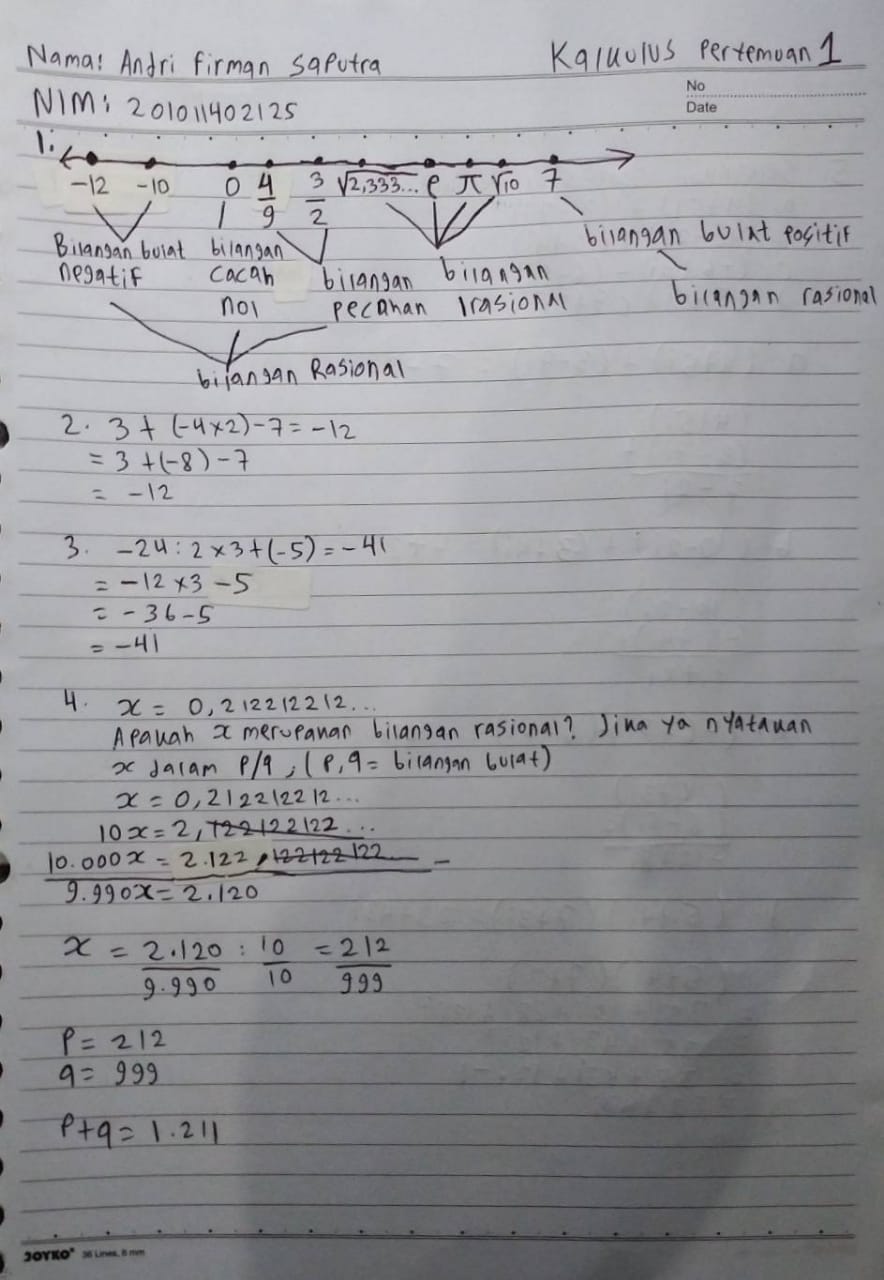 Nama: Andri Firman Saputra
Kalkulus Pertemuan 1
No
NIM: 201011402125
Date
1.
-12 -10 0 4/9 3/2 √2,333... e π √10 7
Bilangan bulat negatif
bilangan cacah nol
bilangan pecahan
bilangan Irasional
bilangan bulat positif
bilangan rasional
bilangan Rasional
2. 3 + (-4×2)-7 = -12
= 3 +(-8) - 7
= -12
3. -24 : 2 × 3 + (-5) = -41
= -12 × 3 - 5
= -36 - 5
= -41
4. x = 0,212212212...
Apakah x merupakan bilangan rasional? Jika ya nyatakan
x dalam P/q, (P,q = bilangan bulat)
x = 0,212212212...
10x = 2,122122122...
10.000x = 2.122,122122122... -
9.990x = 2.120
x = 2.120/9.990 : 10/10 = 212/999
P = 212
q = 999
P+q = 1.211
JOYKO 36 Lines, 8 mm